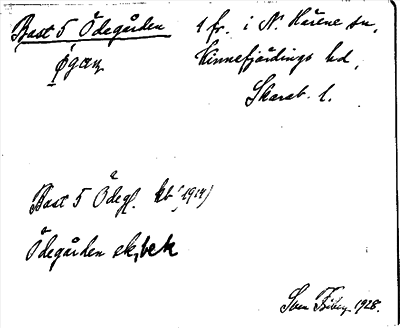 Bast 5 Ödegården 1 fr. i N. Härene sn,
ø̀gaɳ Kinnefjärdings hd,
Skarab. l.
Bast 5 Ödeg. kb (1914)
Ödegården ek, bek
Sven 1928.